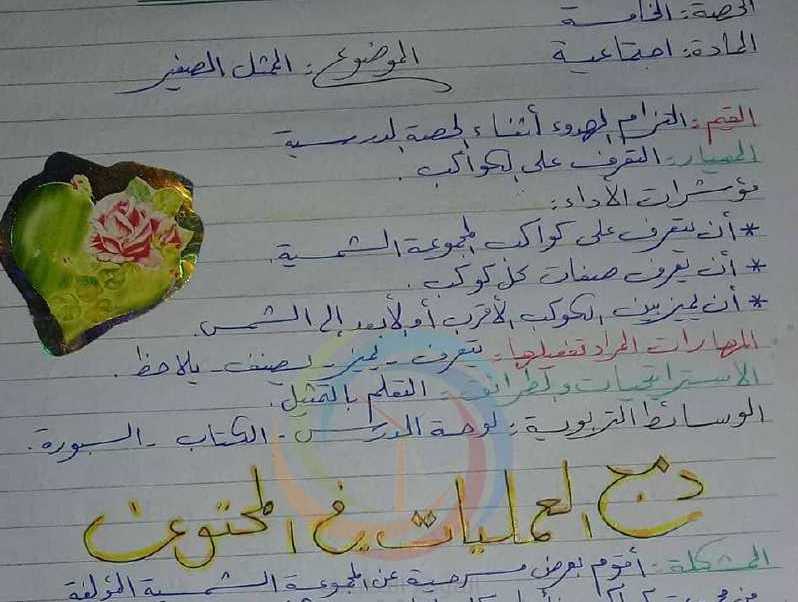 الحصة: الخامسة
المادة: اجتماعية
الموضوع: الممثل الصغير
القيم: التزام الهدوء أثناء الحصة الدرسية
المعيار: التعرف على الكواكب.
مؤشرات الأداء:
* أن يتعرف على كواكب المجموعة الشمسية.
* أن يعرف صفات كل كوكب.
* أن يميز بين الكوكب الأقرب أو الأبعد إلى الشمس.
المهارات المراد تفعيلها: يتعرف - يميز - يصنف - يلاحظ.
الاستراتيجيات والطرائق: التعلم بالتمثيل.
الوسائط التربوية: لوحة الدرس - الكتاب - السبورة.
دمج العمليات في المحتوى
المشكلة: أقوم بعرض مسرحية عن المجموعة الشمسية المؤلفة